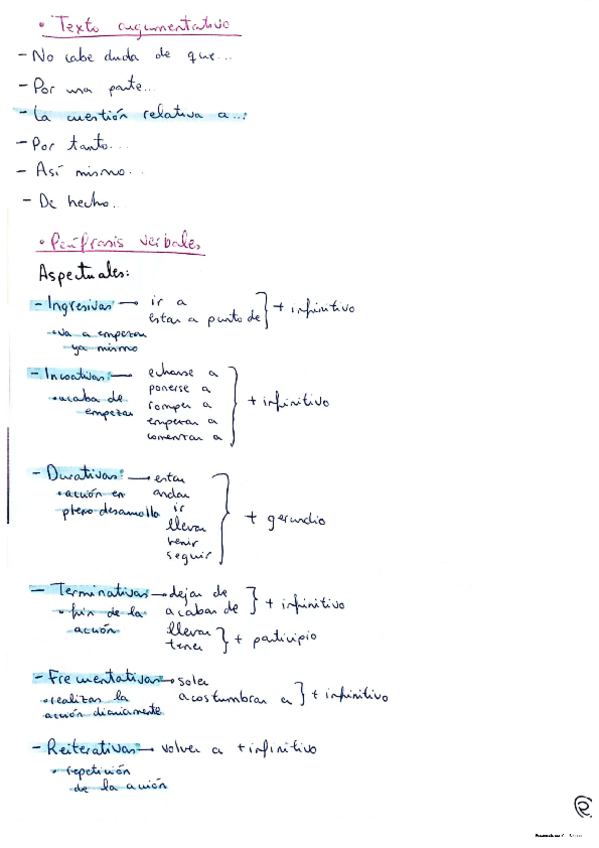 • Texto argumentativo
- No cabe duda de que...
- Por una parte...
- La cuestión relativa a...
- Por tanto...
- Así mismo...
- De hecho..
• Perífrasis verbales
Aspectuales:
- Ingresivas → ir a
estar a punto de } + infinitivo
• va a empezar
ya mismo
- Incoativas: → echarse a
• acaba de
empezar
ponerse a
romper a
empezar a
comenzar a
} + infinitivo
- Durativas: → estar
• acción en
pleno desarrollo
andar
ir
llevar
venir
seguir
} + gerundio
- Terminativas → dejar de
acabar de } + infinitivo
• fin de la
acción
llevar
tener } + participio
- Frecuentativas → soler
acostumbrar a } + infinitivo
• realizar la
acción diariamente
- Reiterativas → volver a + infinitivo
• repetición
de la acción